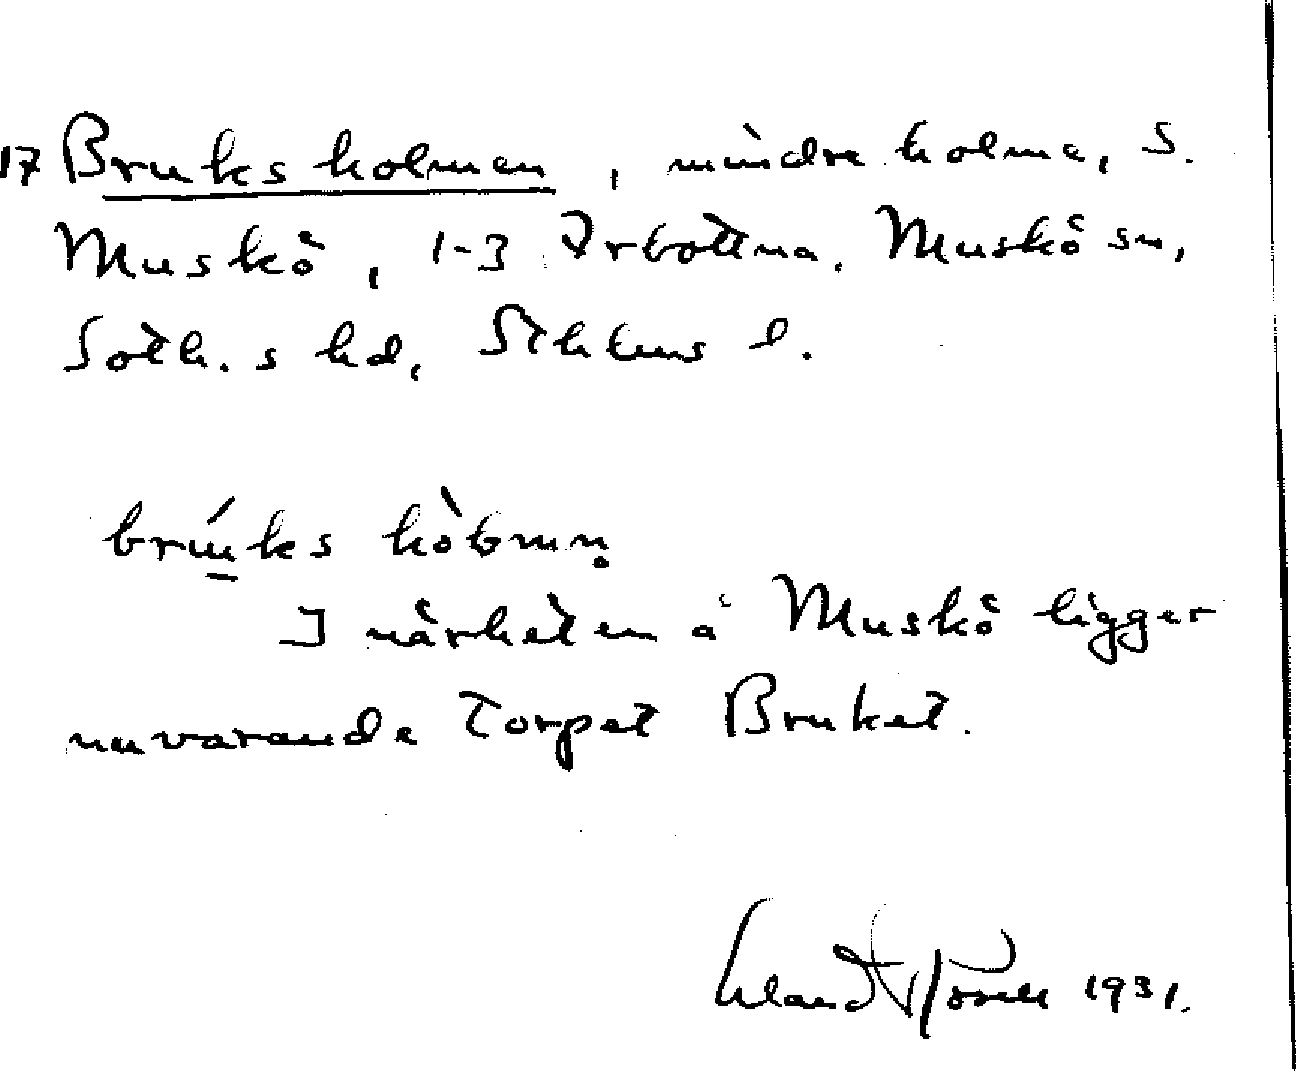 17 Bruksholmen, mindre holme, S.
Muskö, 1-3 Arbottna, Muskö sn,
Soth.s hd, Sthlms l.
brúks hòbmen
I närheten å Muskö ligger
nuvarande torpet Bruket.
Erland 1931.